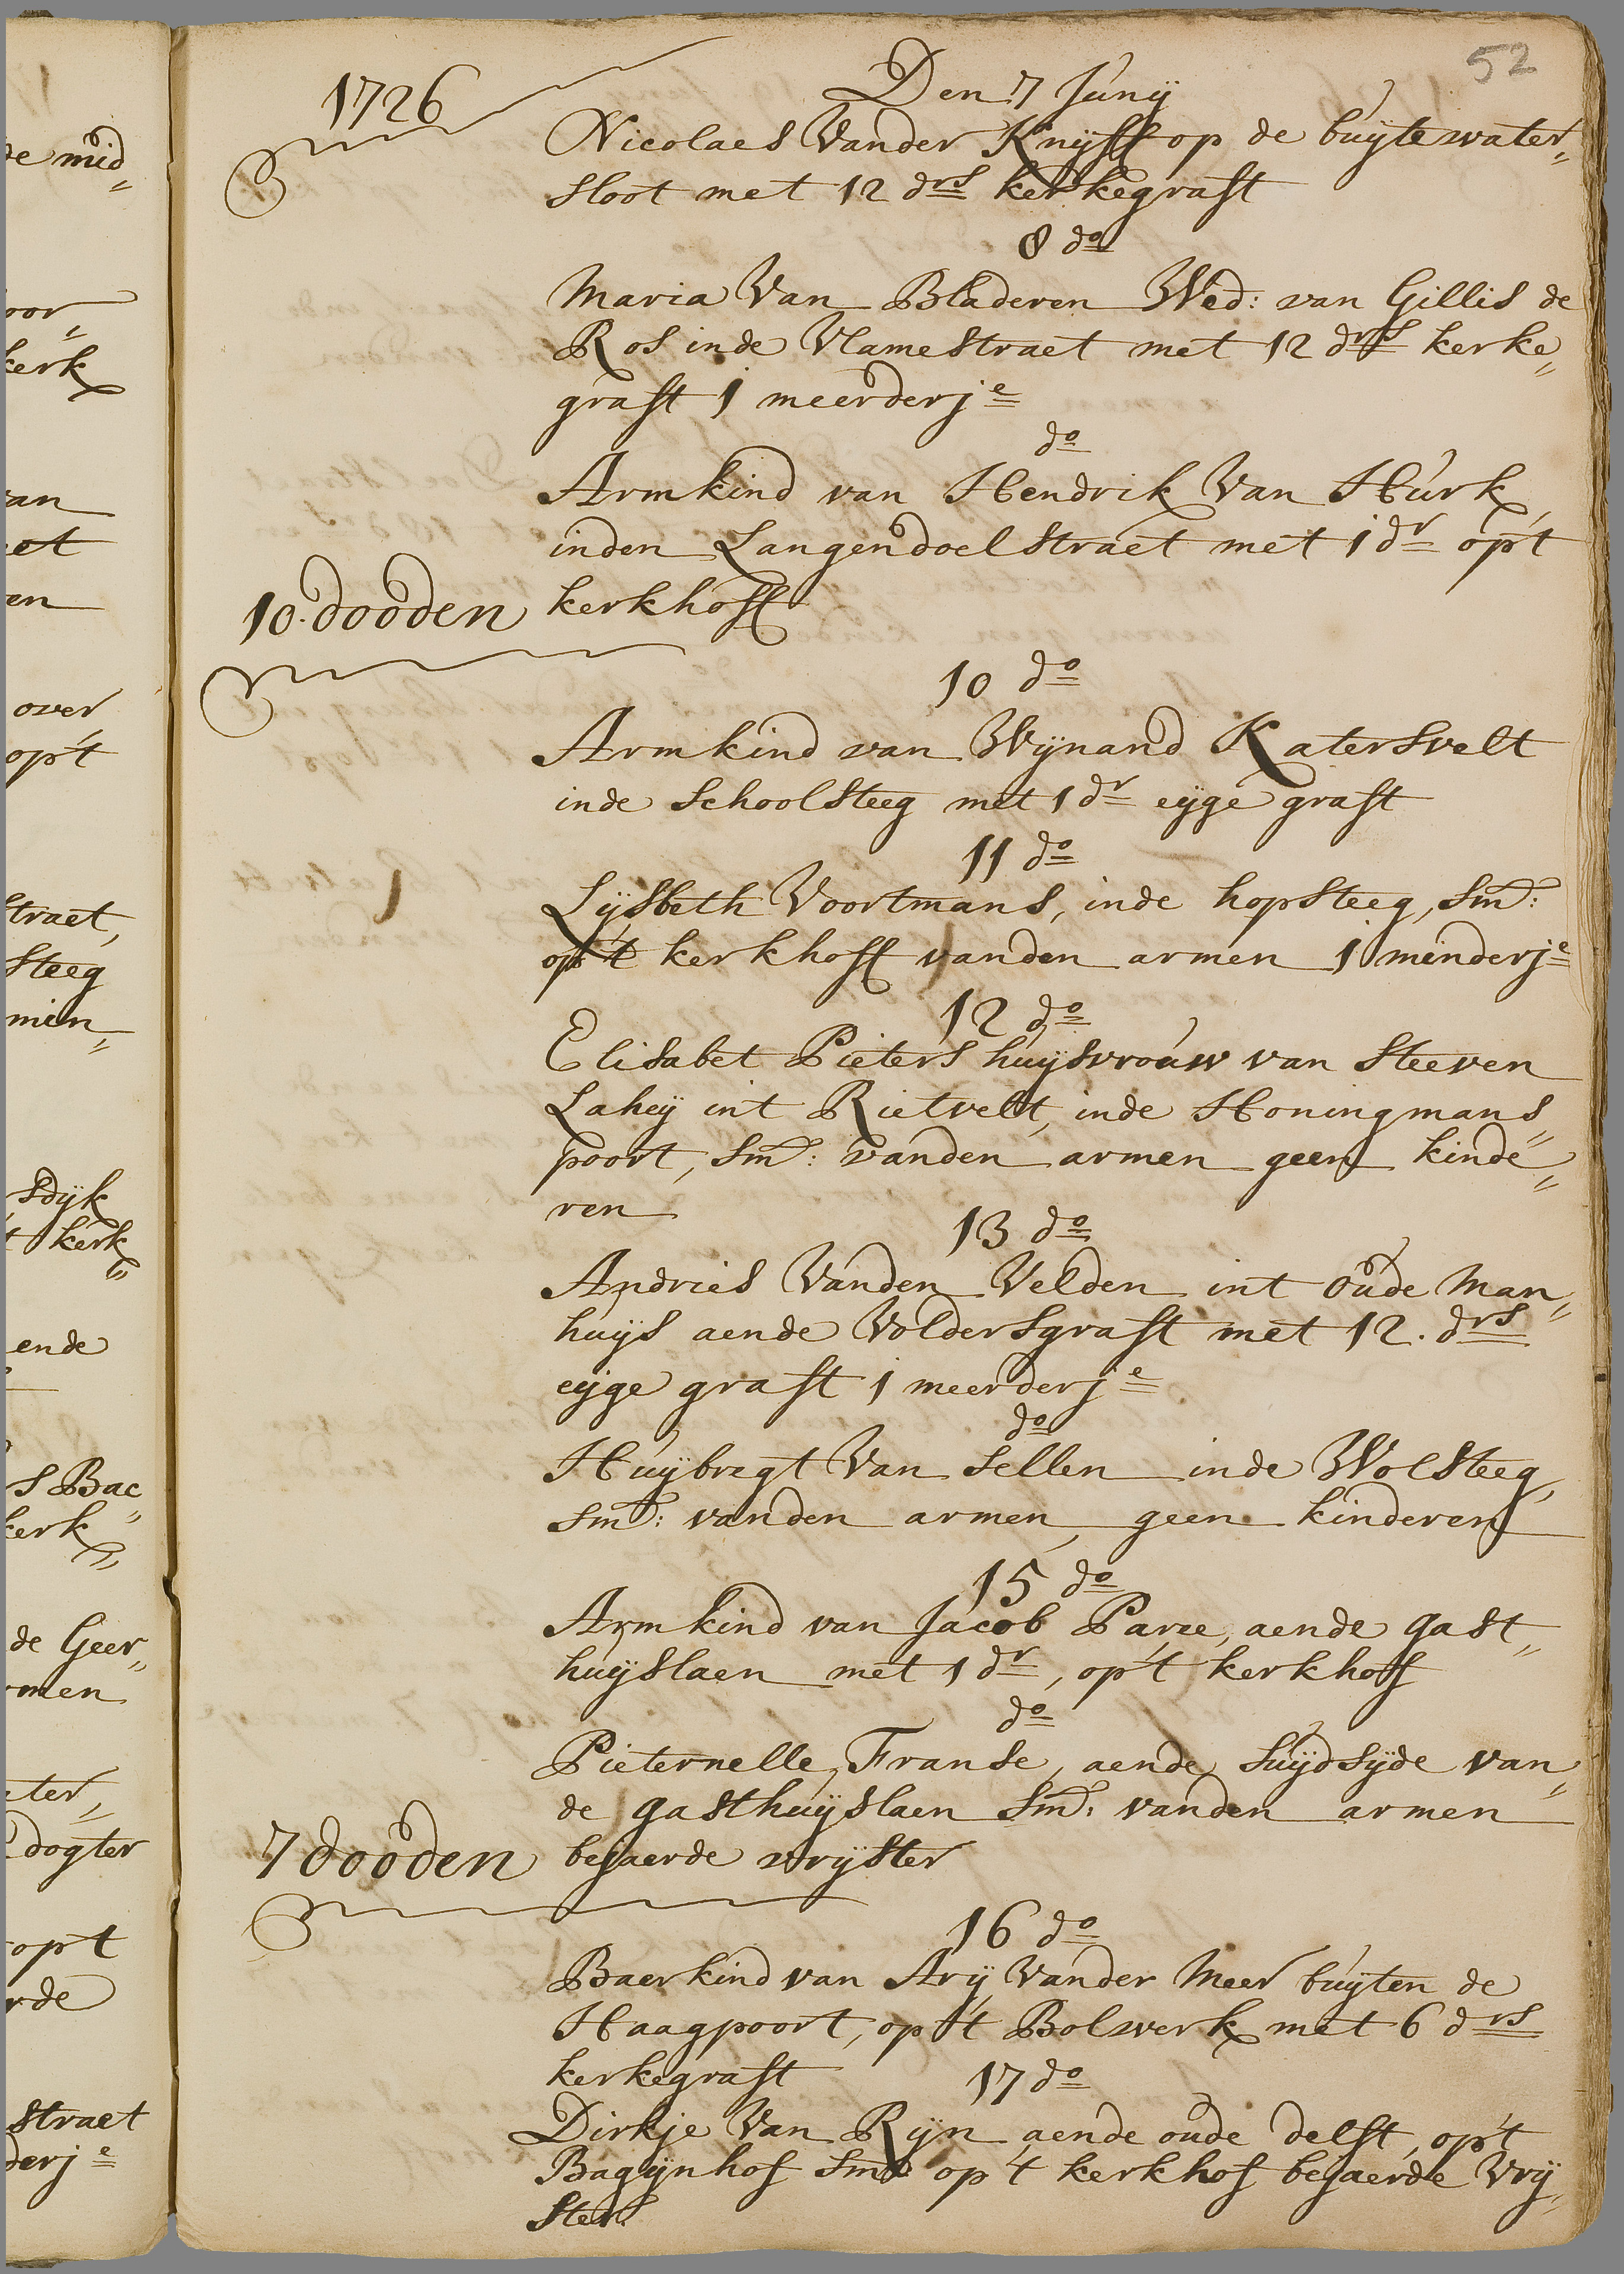 52
1726
Den 7 Junÿ
Nicolaes Vander Knÿff op de buÿtewater„
sloot met 12 drs kerkegraft
8 do
Maria Van Bladeren Wed: van Gillis de
Ros inde Vlamestraet met 12 drs kerke„
graft 1 meerderje
do
Armkind van Hendrik Van Hurk,
inden Langendoelstraet met 1 dr op't
kerkhoff
10. dooden
10 do
Armkind van Wÿnand Katersvelt
inde Schoolsteeg met 1 dr eÿge graft
11 do
Lÿsbeth Voortmans, inde hopsteeg, Smd:
op't kerkhoff vanden armen 1 minderje
12 do
Elisabet Pieters huÿsvrouw van Steeven
Laheÿ int Rietvelt, inde Honingmans„
poort, Smd: vanden armen geen kinde„
ren
13 do
Andries Vanden Velden int Oude Man„
huÿs aende Voldersgraft met 12. drs
eÿge graft 1 meerderje
do
Huÿbregt Van Sellen inde Wolsteeg,
Smd: vanden armen, geen kinderen
15 do
Armkind van Jacob Parre, aende gast„
huÿslaen met 1 dr, op't kerkhoff
do
Pieternelle Franse, aende Suÿdsÿde van„
de gasthuÿslaen Smd: vanden armen
bejaerde vrÿster
7 dooden
16 do
Baerkind van Arÿ Vander Meer buÿten de
Haagpoort, op't Bolwerk met 6 drs
kerkegraft
17 do
Dirkje Van Rÿn aende oude delft, op't
Bagÿnhof Smd op't kerkhof bejaerde Vrÿ„
ster.
de mid„
kerk
van
en
over
op't
straet,
steeg
min„
sdÿk
kerk„
ende
s Bac„
kerk„
de Geer„
dogter
op't
straet
derje